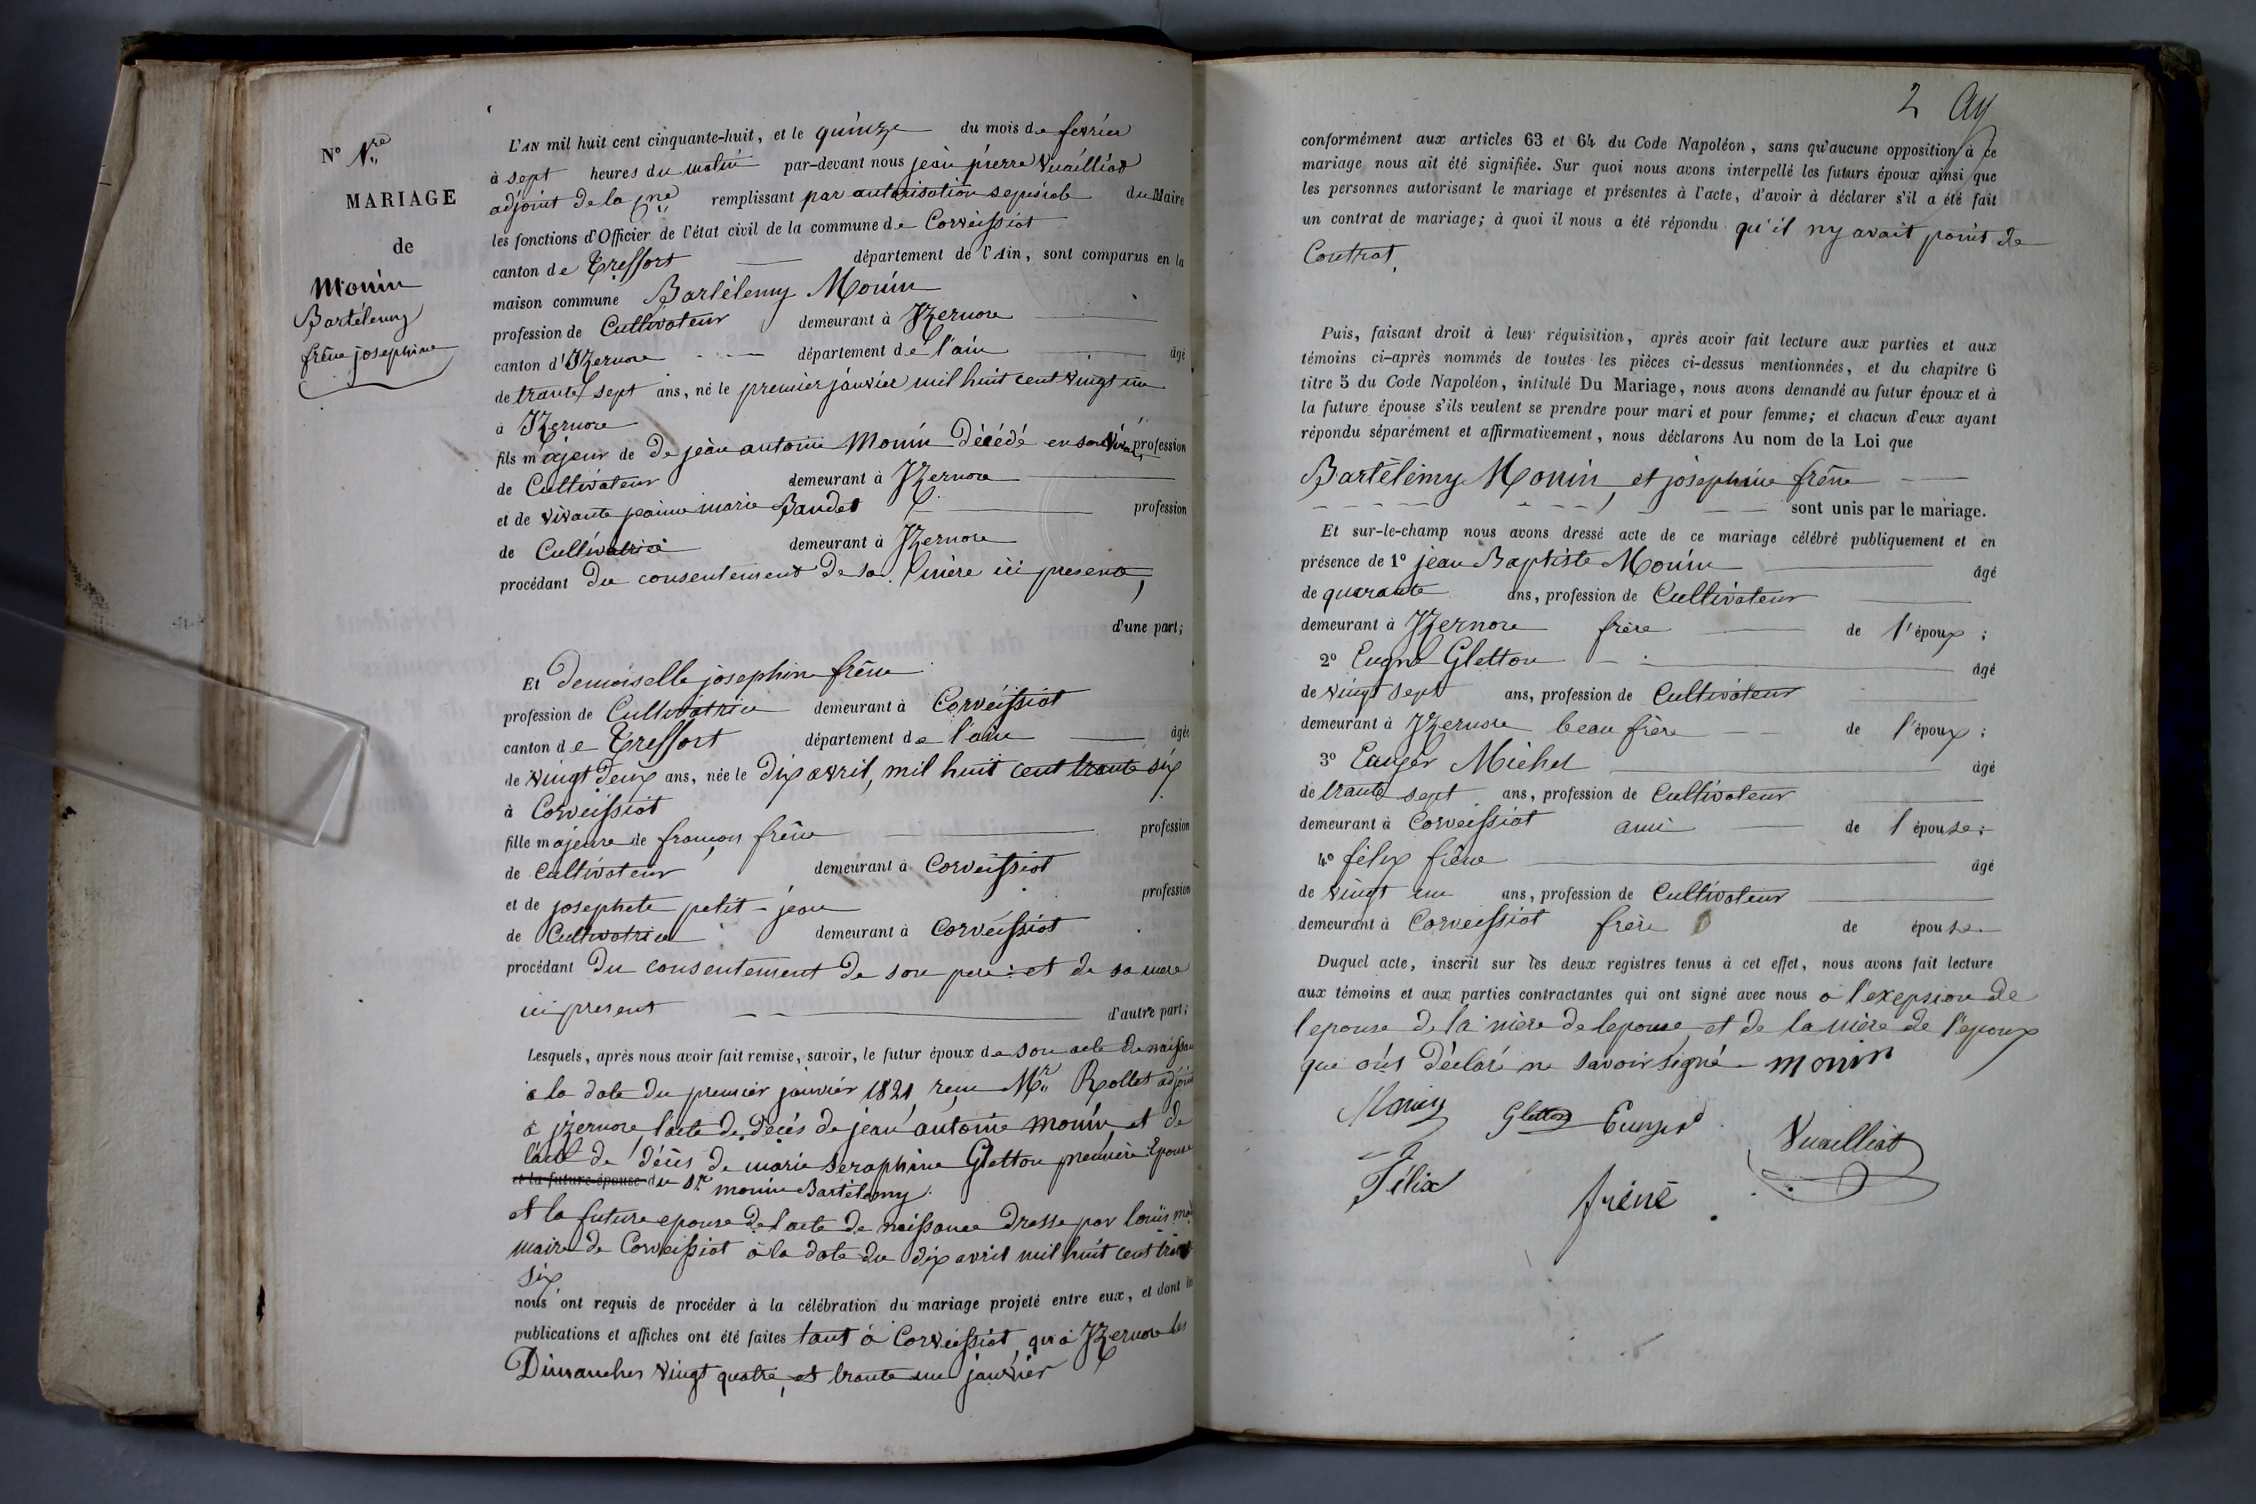 N° 1re
MARIAGE
de
Monin
Bartélemy
frêne josephine
L'AN mil huit cent cinquante-huit, et le quinze du mois de fevrier
à sept heures du matin par-devant nous jean pierre Vuailliat
adjoint de la remplissant par autorisation du Maire
les fonctions d'Officier de l'état civil de la commune de Corveissiat
canton de Treffort département de l'Ain, sont comparus en la
maison commune Bartélemy Monin
profession de Cultivateur demeurant à Izernore
canton d'Izernore département de l'ain âgé
de trante sept ans, né le premier janvier mil huit cent vingt un
à Izernore
fils majeur de De jean antoine Monin Décédé en son vivant profession
de Cultivateur demeurant à Izernore
et de vivante jeanne marie Baudet profession
de Cultivatrice demeurant à Izernore
procédant Du consentement De sa mère ici presente,
d'une part;
Et Demoiselle josephine frêne
profession de Cultivatrice demeurant à Corveissiat
canton de Treffort département de l'ain âgée
de vingt Deux ans, née le Dix avril, mil huit cent trante six
à Corveissiat
fille majeure de francois frêne profession
de Cultivateur demeurant à Corveissiat
et de josephete petit-jean profession
de Cultivatrice demeurant à Corveissiat
procédant Du consentement De son pere et de sa mere
ici present d'autre part;
Lesquels, après nous avoir fait remise, savoir, le futur époux de son acte De naissan
à la date Du premier janvier 1821 recu Mr Rollet adjoint
à jzernore, lacte De Décés De jean antoine monin et De
lacte De Décés De marie seraphine Gletton première Epouse
et la future épouse du Sr monin Bartélemy.
et la future epouse De lacte De naissance Dresse par louis
maire De Corveissiat à la date du Dix avril mil huit cent trante
six
nous ont requis de procéder à la célébration du mariage projeté entre eux, et dont les
publications et affiches ont été faites tant à Corveissiat, qu'à Izernore les
Dimanches vingt quatre, et trante un janvier
2
conformément aux articles 63 et 64 du Code Napoléon, sans qu'aucune opposition à ce
mariage nous ait été signifiée. Sur quoi nous avons interpellé les futurs époux ainsi que
les personnes autorisant le mariage et présentes à l'acte, d'avoir à déclarer s'il a été fait
un contrat de mariage; à quoi il nous a été répondu qu'il ny avait point de
Contrat.
Puis, faisant droit à leur réquisition, après avoir fait lecture aux parties et aux
témoins ci-après nommés de toutes les pièces ci-dessus mentionnées, et du chapitre 6
titre 5 du Code Napoléon, intitulé Du Mariage, nous avons demandé au futur époux et à
la future épouse s'ils veulent se prendre pour mari et pour femme; et chacun d'eux ayant
répondu séparément et affirmativement, nous déclarons Au nom de la Loi que
Bartélémy Monin, et josephine frêne
sont unis par le mariage.
Et sur-le-champ nous avons dressé acte de ce mariage célébré publiquement et en
présence de 1° jean Baptiste Monin âgé
de quarante ans, profession de Cultivateur
demeurant à Izernore frère de l'époux;
2° Eugne Gletton âgé
de vingt sept ans, profession de Cultivateur
demeurant à Izernore beau frère de l'époux;
3° Michel âgé
de trante sept ans, profession de Cultivateur
demeurant à Corveissiat ami de l'épouse;
4° félix frêne âgé
de vingt un ans, profession de Cultivateur
demeurant à Corveissiat frère de épouse
Duquel acte, inscrit sur les deux registres tenus à cet effet, nous avons fait lecture
aux témoins et aux parties contractantes qui ont signé avec nous à l'exepsion de
l'epouse De la mère de lepouse et de la mère de l'epoux
que ont Déclaré ne savoir signé monin
Monin Gletton Vuailliat
Félix frêne